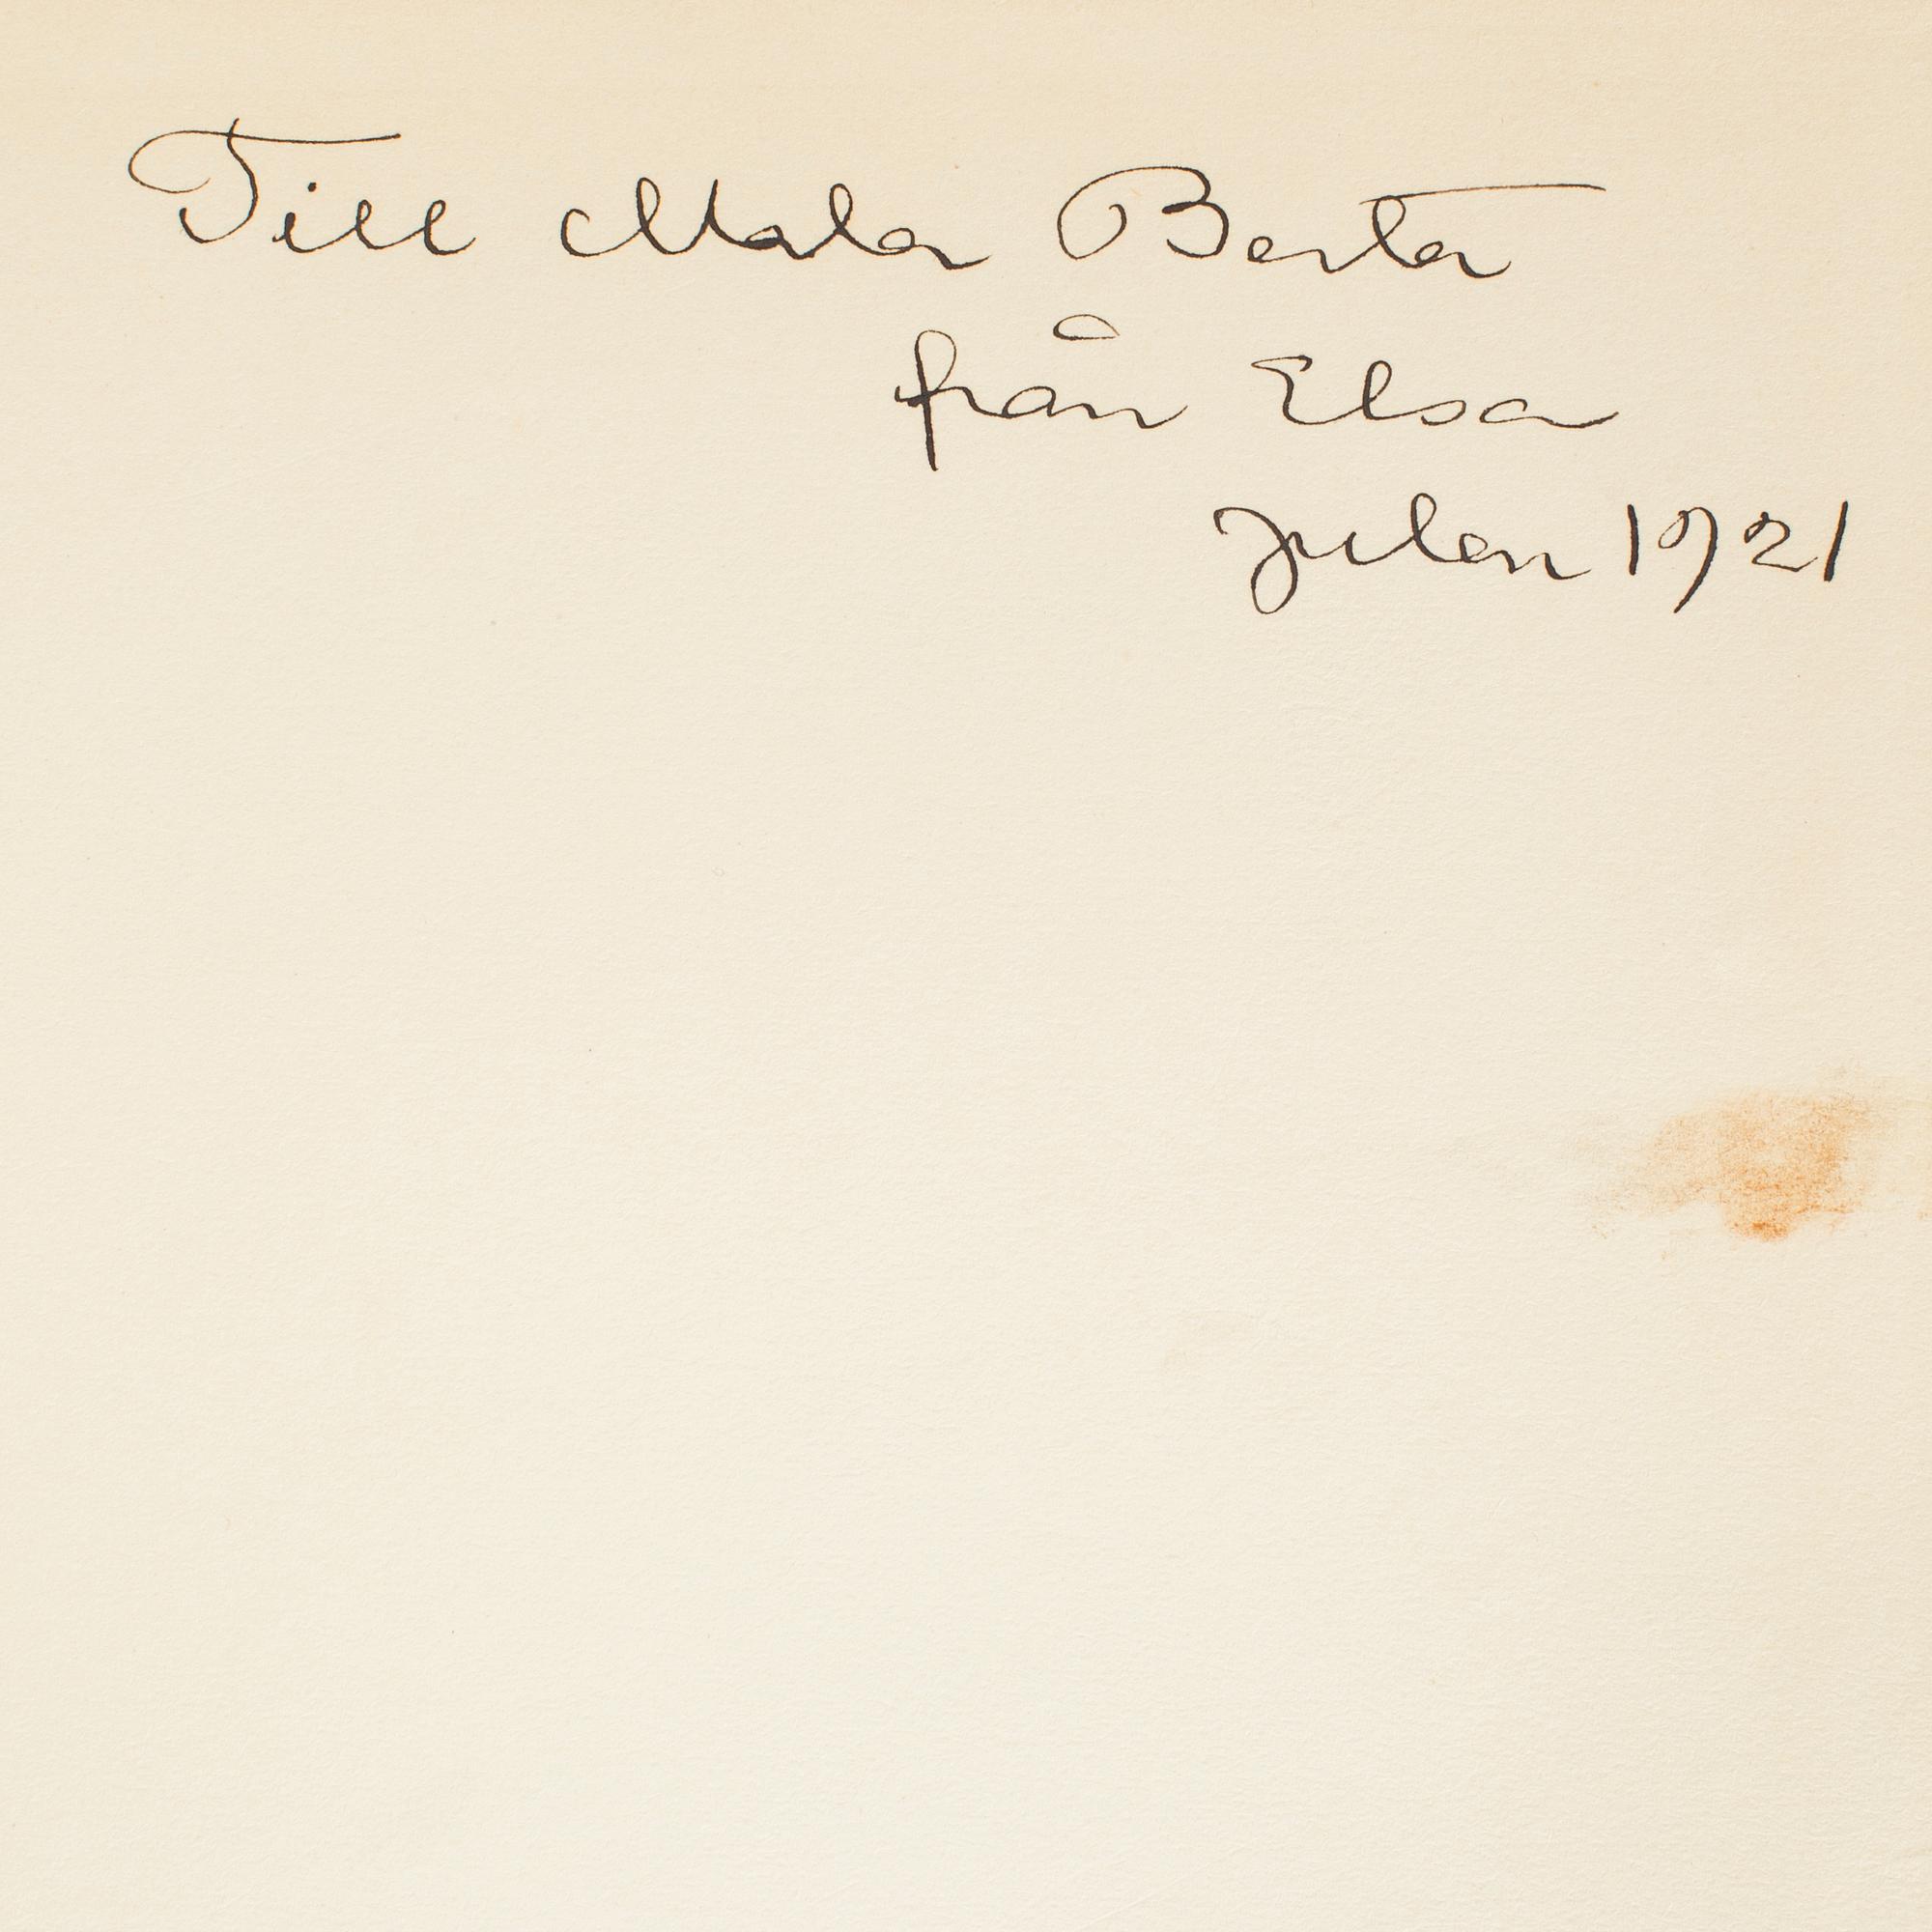 Till Mala Berta
från Elsa
Julen 1921